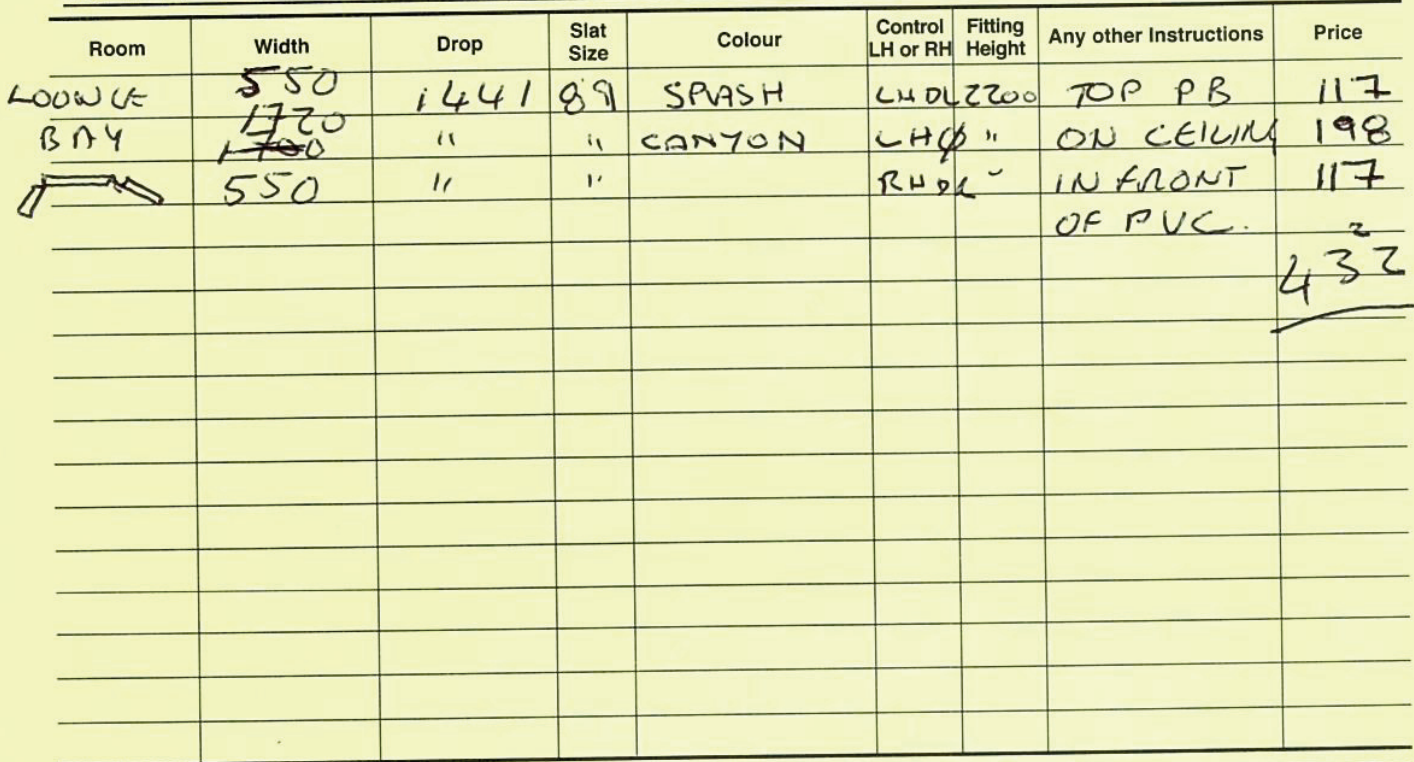 Room Width Drop Slat Size Colour Control LH or RH Fitting Height Any other Instructions Price
LOUNGE 550 1441 89 SPLASH LHDL 2200 TOP PB 117
BAY 1720 1700 " " CANYON LHO " ON CEILING 198
550 " " RHDL " IN FRONT 117
OF PVC. 2
432